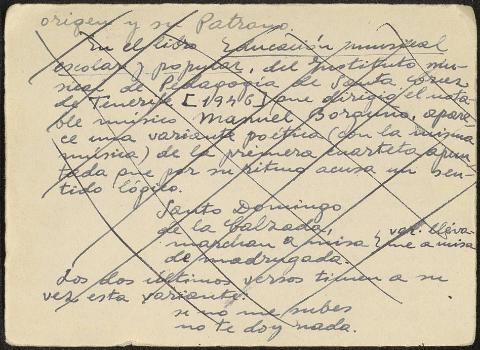 origen y su Patrono.
En el libro Educación musical
escolar y popular, del Instituto mu-
sical de Pedagogía de Santa Cruz
de Tenerife [1946] que dirigió el nota-
ble músico Manuel Borguñó, apare-
ce una variante poética (con la misma
música) de la primera cuarteta apun-
tada que por su ritmo acusa un sen-
tido lógico.
Santo Domingo
de la Calzada,
marchan a misa { var. lléva-
me a misa
de madrugada.
Los dos últimos versos tienen a su
vez esta variante:
si no me subes
no te doy nada.